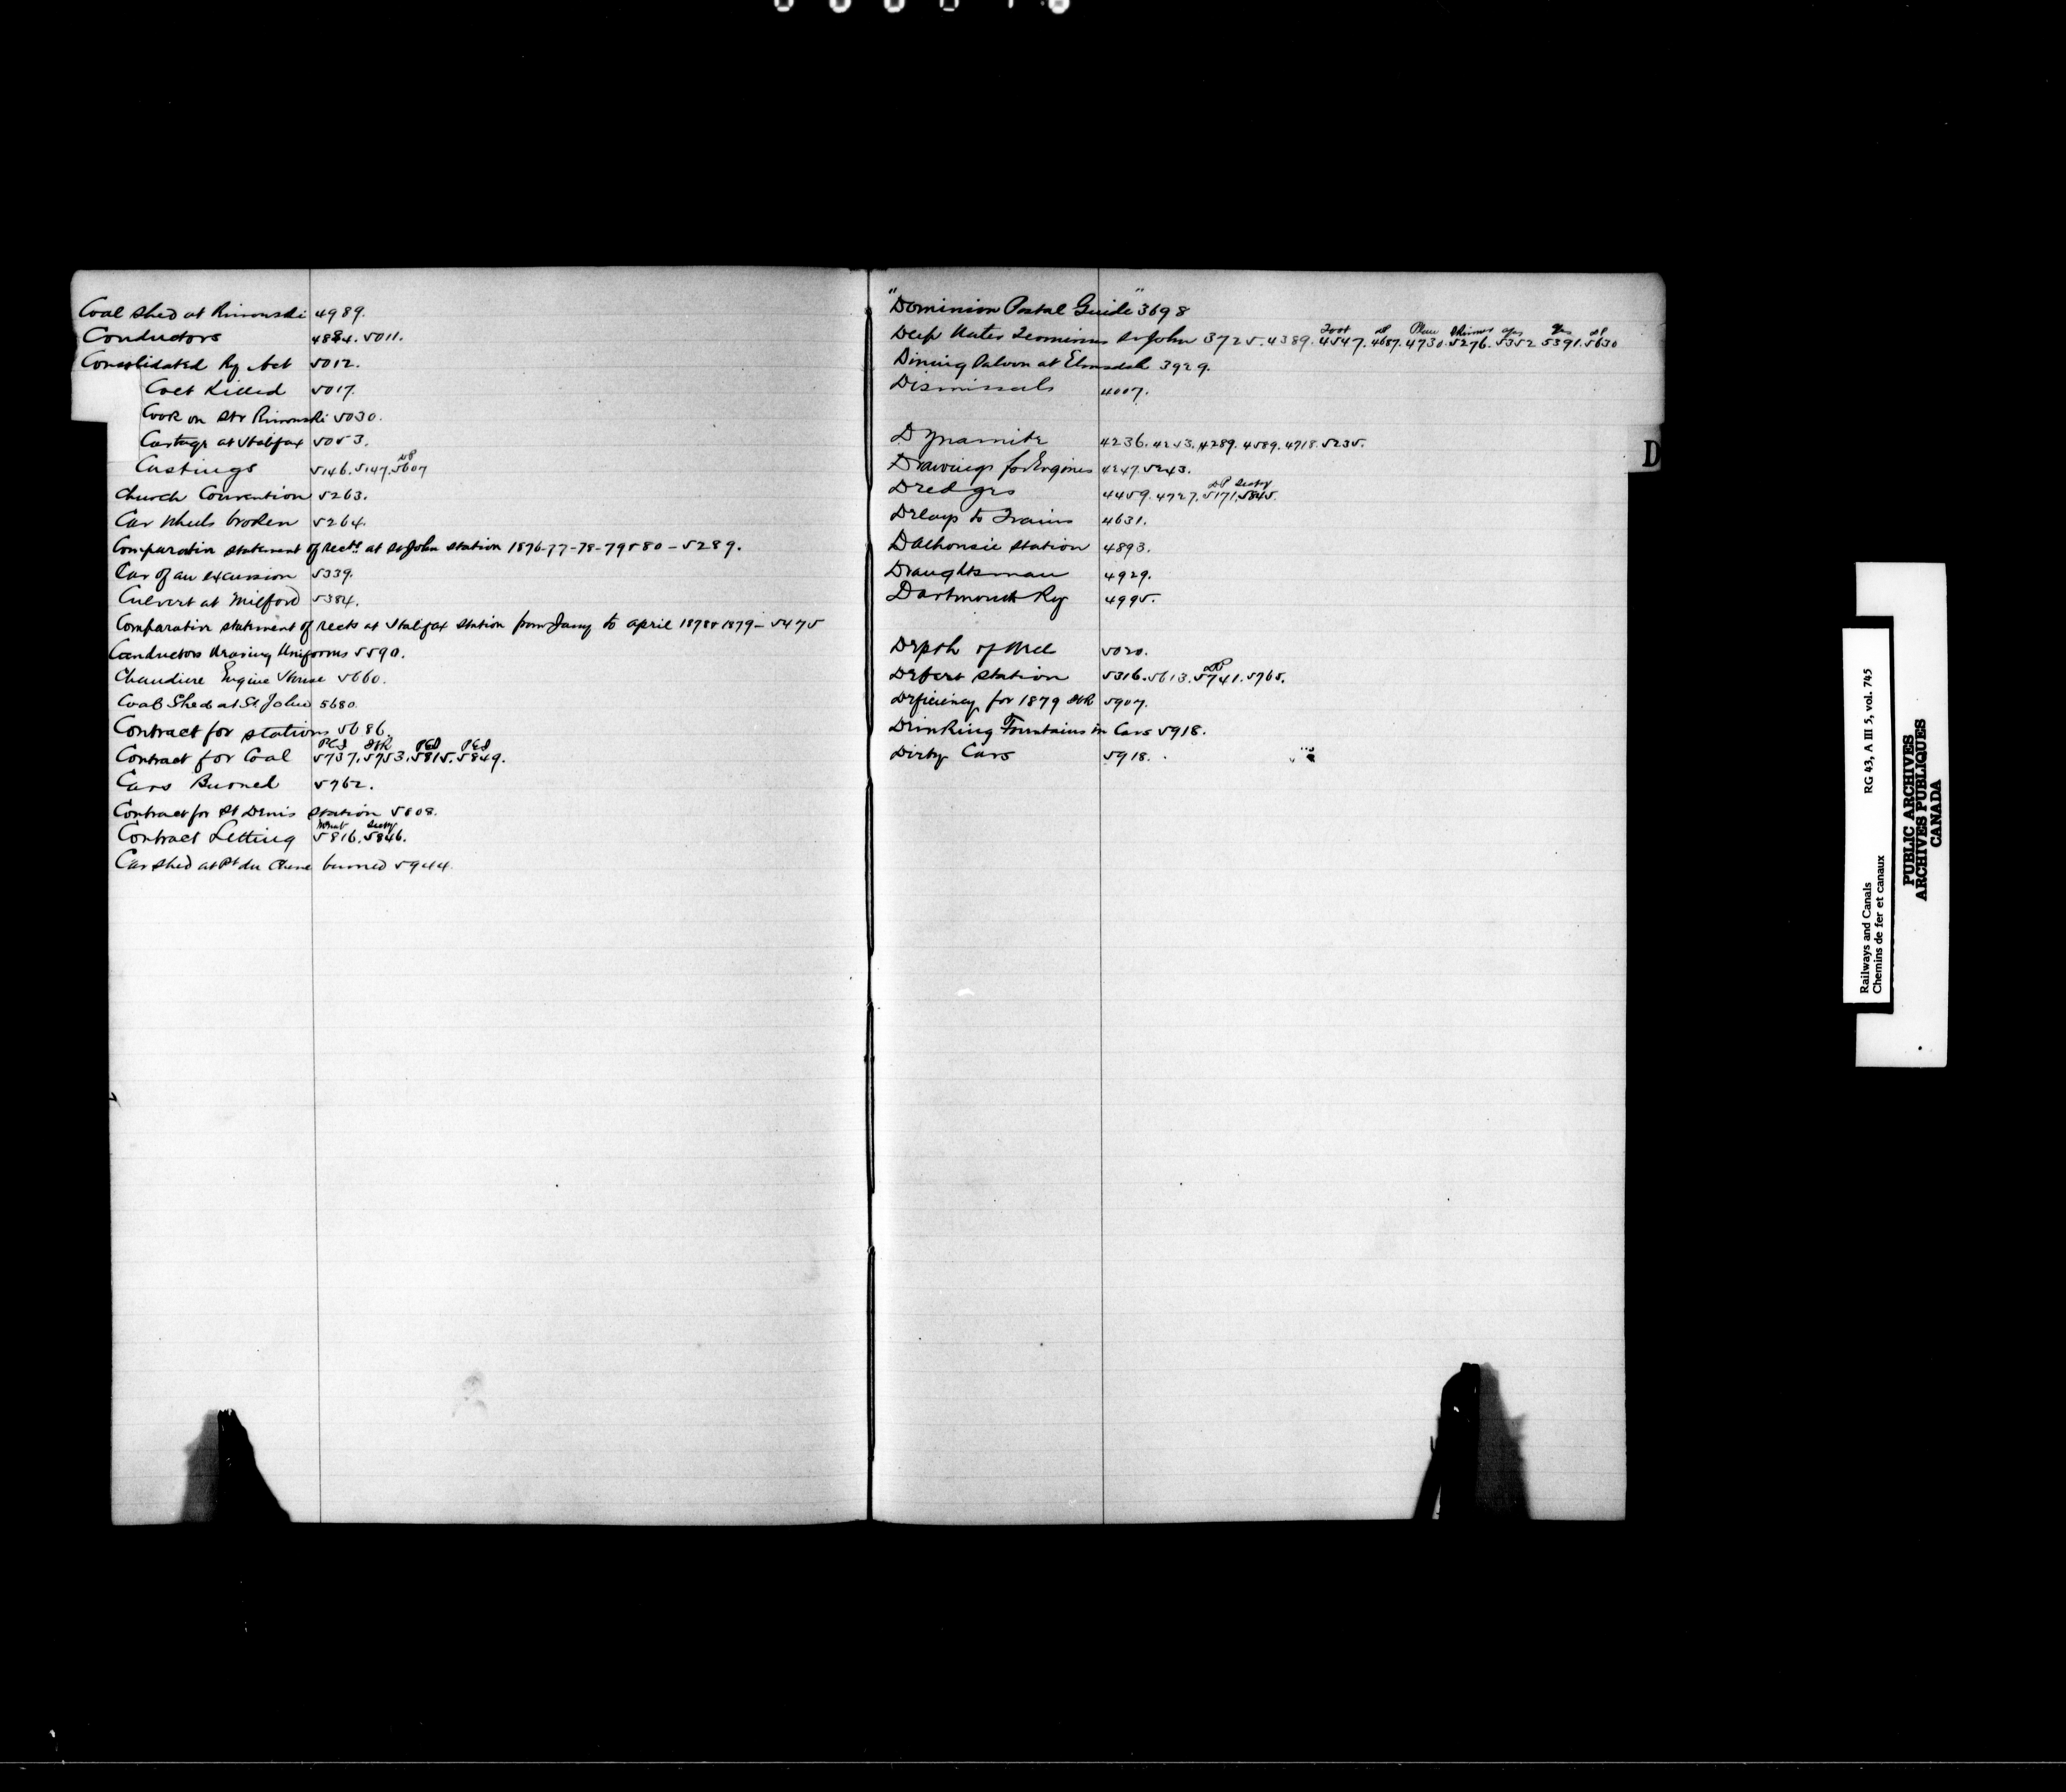 Coal shed at Rimouski 4989.
Conductors 4884. 5011.
Consolidated Ry Act 5012.
Colt Killed 5017.
Cook on Str Rimouski 5030.
Cartage at Halifax 5053.
Castings 5146. 5147. 5607
Church Convention 5263.
Car wheels broken 5264.
Comparative statement of rects at St John station 1876-77-78-79 & 80 - 5289.
Car of an excursion 5339.
Culvert at Milford 5384.
Comparative statement of rects at Halifax station from Jany to April 1878 & 1879 - 5475
Conductors wearing Uniforms 5590.
Chaudiere Engine House 5660.
Coal Shed at St John 5680.
Contract for stations 5686.
Contract for Coal 5737. 5753. 5815. 5849.
Cars Burned 5762.
Contract for St Denis station 5808.
Contract Letting 5816. 5846.
Car shed at Pt du Chene burned 5944.
"Dominion Postal Guide" 3698
Deep Water Terminus St John 3725. 4389. 4547. 4687. 4730. 5276. 5352 5391. 5630
Dining Saloon at Elmsdale 3929.
Dismissals 4007.
Dynamite 4236. 4253. 4289. 4589. 4718. 5235.
D
Drawings for Engines 4247. 5243.
DP Secty
Dredges 4459. 4727. 5171. 5845.
Delays to Trains 4631.
Dalhousie station 4893.
Draughtsman 4929.
Dartmouth Ry 4995.
Depth of Well 5020.
DP
Debert station 5316. 5613. 5741. 5765.
Deficiency for 1879 5907.
Drinking Fountains in Cars 5918.
Dirty Cars 5918.
Railways and Canals RG 43, A III 5, vol. 745
Chemins de fer et canaux
PUBLIC ARCHIVES
ARCHIVES PUBLIQUES
CANADA